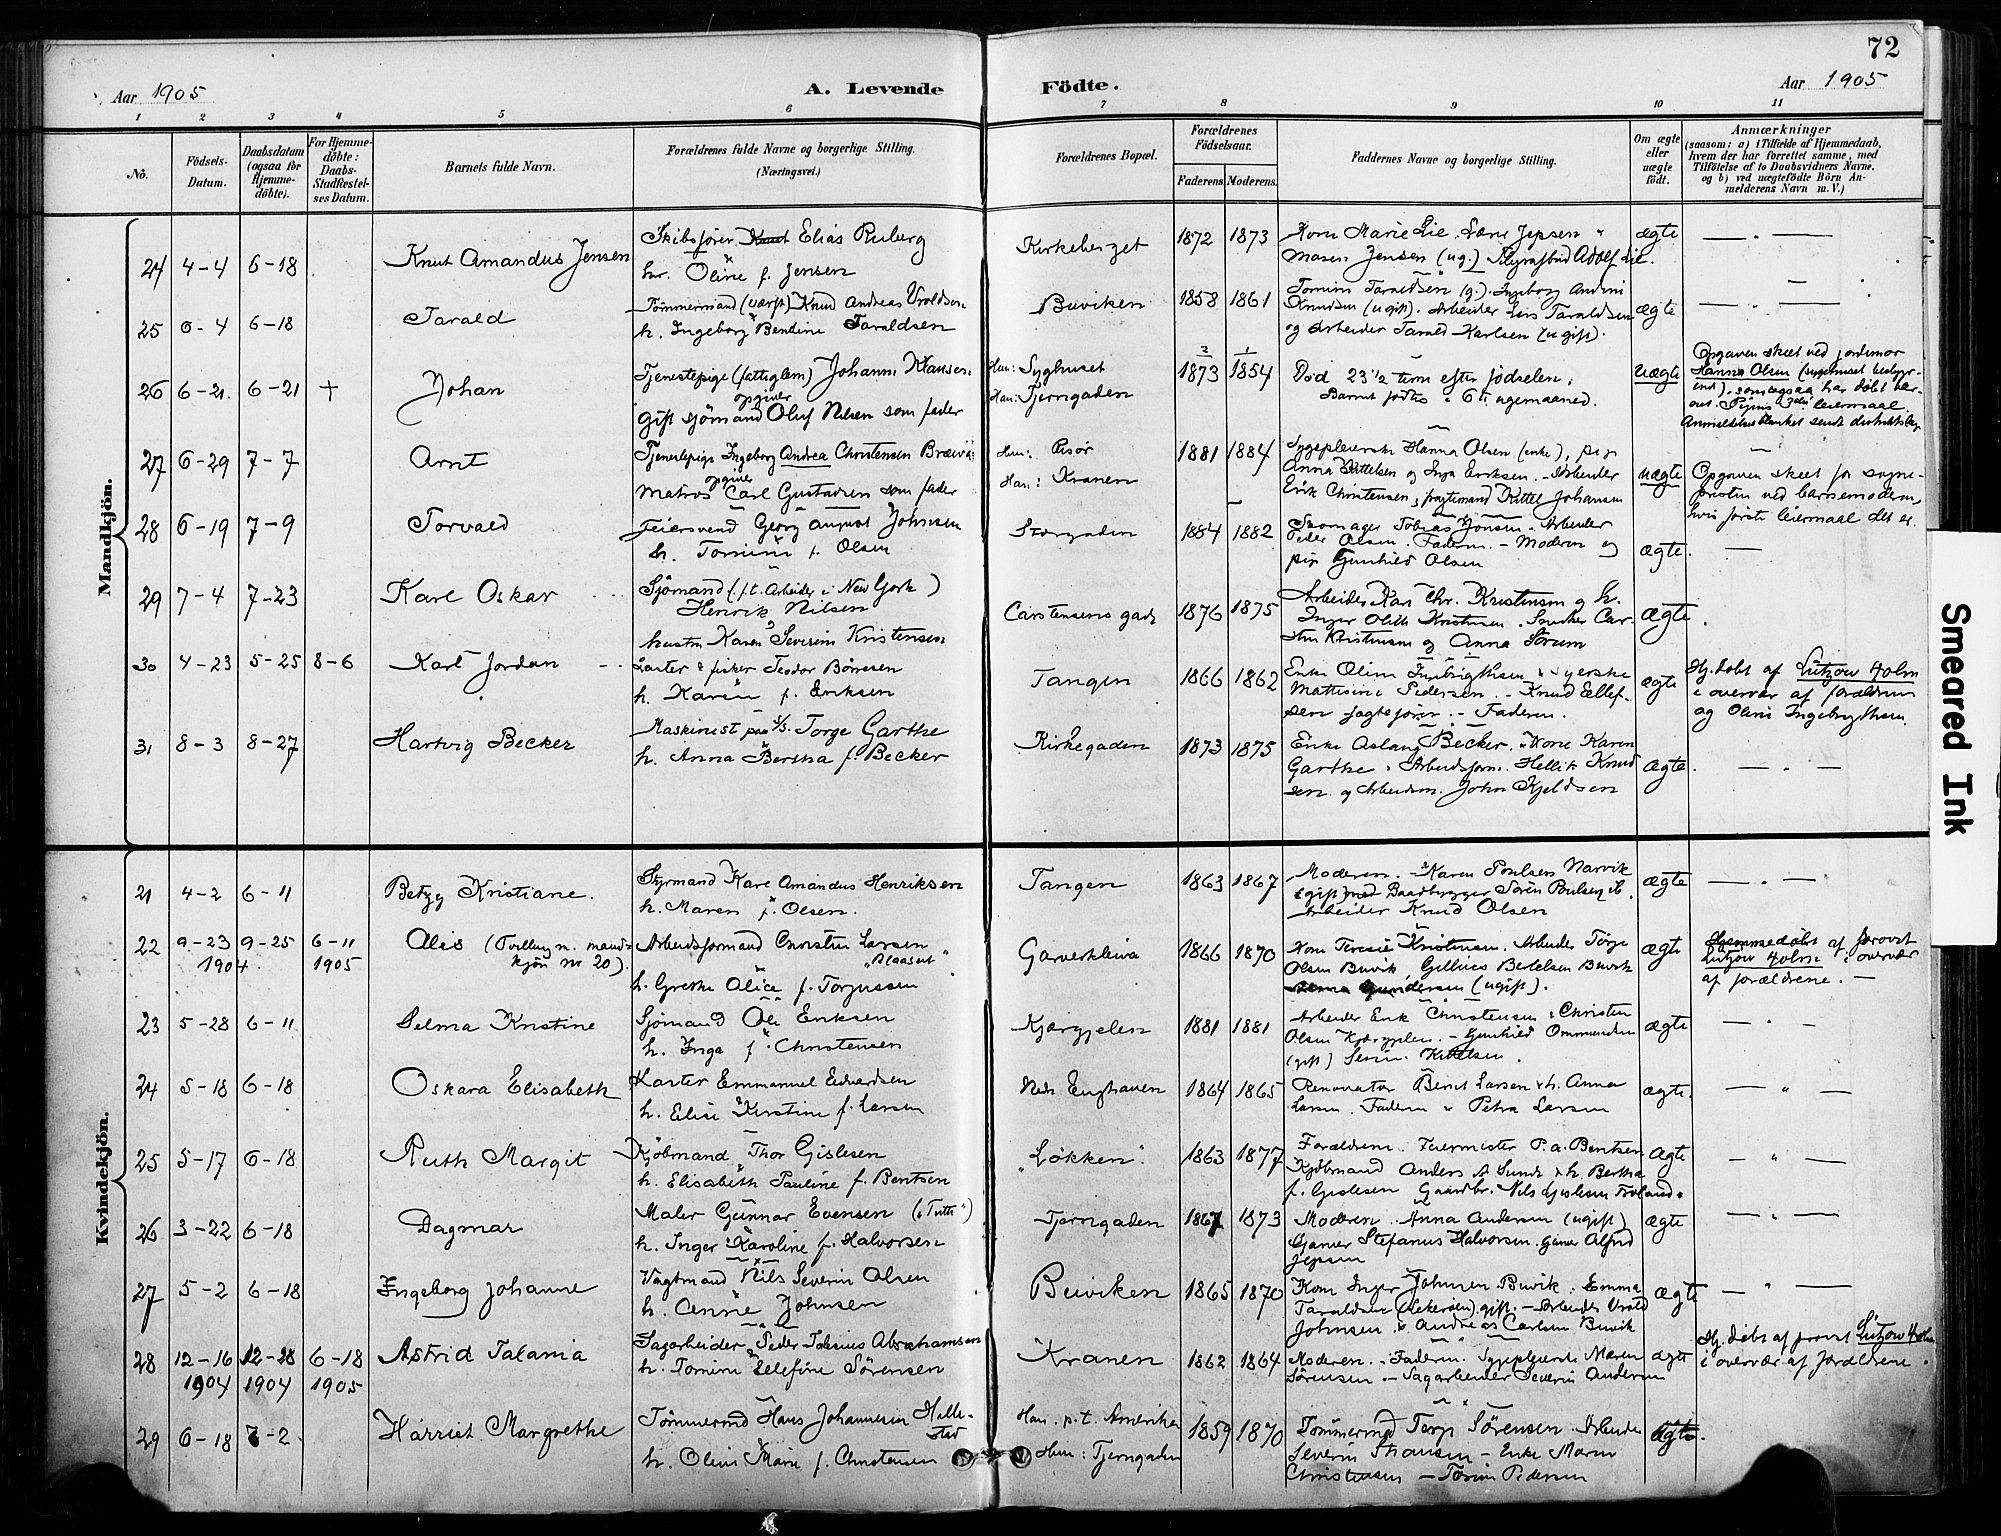 72
Aar 1905 A. Levende Födte. Aar 1905
1 2 3 4 5 6 7 8 9 10 11
No.
Födsels-Datum.
Daabsdatum (ogsaa for Hjemme-döbte).
For Hjemme-döbte: Daabs-Stadfæstel-ses Datum.
Barnets fulde Navn.
Forældrenes fulde Navne og borgerlige Stilling.
(Næringsvei.)
Forældrenes Bopæl.
Forældrenes Födselsaar.
Faderens. Moderens.
Faddernes Navne og borgerlige Stilling.
Om ægte eller uægte födt.
Anmærkninger
(saasom: a) i Tilfælde af Hjemmedaab,
hvem der har forrettet samme, med
Tilföielse af to Daabsvidners Navne,
og b) ved uægtefödte Börn An-
melderens Navn m. V.)
Mandkjön.
24 4-4 6-18 Knut Amandus Jensen
Skibsfører Knut Elias Ruberg
h. Oline f. Jensen
Kirkeberget 1872 1873
Kone Marie Lie. Lars Jepsen
Maren Jensen (ug.) Adolf Lie.
ægte
25 6-4 6-18 Tarald
Tömmermand (værft) Knud Andreas Vroldsen
h. Ingeborg Bendine Taraldsen
Buviken 1858 1861
Tomine Taraldsen (g.) Ingeborg Andrine
Knudsen (ugift). Arbeider Lars Taraldsen
og Arbeider Tarald Karlsen (ugift).
ægte
26 6-21 6-21 + Johan
Tjenestepige (fattiglem) Johanne Klausen
opgiver
gift sjömand Oluf Nilsen som fader
Hun: Syghuset
Han: Tjerngaden
1873 1854
Död 23 1/2 time efter födselen.
Barnet födtes i 6te ugemaaned.
uægte
Opgaven skeet ved jordemor
Hanna Olsen (syghuset bestyr-
inde), som ogsaa har döbt bar-
net. Pigens 3die leiermaal.
Anmeldelsesblanket sendt distriktslæge
27 6-29 7-7 Arnt
Tjenestepige Ingeborg Andrea Christensen Bræivi
opgiver
Matros Carl Gustavsen som fader
Hun: Risör
Han: Kranen
1881 1884
Sygepleierske Hanna Olsen (enke), pige
Anna Kittelsen og Inga Eriksen. Arbeider
Erik Christensen, fragtemand Kittel Johansen
uægte
Opgaven skeet for sogne-
presten ved barnemoderen,
hvis förste leiermaal det er.
28 6-19 7-9 Torvald
Feiersvend Georg August Johnsen
h. Tomine f. Olsen
Storgaden 1884 1882
Skomager Tobias Jonsen. Arbeider
Peder Olsen. Faderen. - Moderen og
pige Gunhild Olsen
ægte.
29 7-4 7-23 Karl Oskar
Sjömand (p.t. Arbeider i New York)
Henrik Nilsen
hustru Karen Severine Kristensen
Carstensens gade 1876 1875
Arbeider Karl Chr. Kristensen og h.
Inger Olette Kristensen. Snedker Car-
Kristensen og Anna Sörum
ægte
30 4-23 5-25 8-6 Karl Jordan
Laster & fisker Teodor Börresen
h. Karen f. Eriksen
Tangen 1866 1862
Enke Oline Ingebrigthsen. Syerske
Mattisine Pedersen. - Knud Ellef-
sen jagtefører. - Faderen.
ægte
Hj. döbt af Lützow Holm
i overvær af forældrene
og Oline Ingebrigthsen.
31 8-3 8-27 Hartvig Becker
Maskinist paa S/S. Torge Garthe
h. Anna Bertha f. Becker
Kirkegaden 1873 1875
Enke Aslaug Becker. Kone Karen
Garthe. Arbeidsform. Hellik Knud
sen og Arbeidsm. John Kjeldsen
ægte.
Kvindekjön.
21 4-2 6-11 Betzy Kristiane.
Styrmand Karl Amandus Henriksen
h. Maren f. Olsen.
Tangen 1863 1867
Moderen. - Karen Poulsen Narvik
(gift) med Baadbygger Sören Poulsen ib.
Arbeider Knud Olsen
ægte
22 9-23 9-25 6-11
1904. 1905
Alis (Tvilling m. mand-
kjön nr 20).
Arbeidsformand Christen Larsen
"Blaasut"
h. Grethe Alice f. Torjussen
Garverkleiva 1866 1870
Kone Teresie Kristensen. Arbeider Törge
Olsen Buvik, Gellius Bertelsen Buvik
Gundersen (ugift).
ægte
Hjemmedöbt af provst
Lützow Holm i overvær
af forældrene.
23 5-28 6-11 Selma Kristine
Sjömand Ole Eriksen
h. Inga f. Christensen
Kjærgjelen 1881 1881
Arbeider Erik Christensen. Christen
Olsen Kjærgjelen. - Gunhild Ommundsen
(gift) Severine Kittelsen.
ægte
24 5-18 6-18 Oskara Elisabeth
Karter Emmanuel Edvardsen
h. Elise Kirstine f. Larsen
Nedre Enghaven 1864 1865
Renovatør Bernt Larsen & h. Anna
Larsen. Faderen & Petra Larsen
ægte.
25 5-17 6-18 Ruth Margit
Kjöbmand Thor Gislesen
h. Elisabeth Pauline f. Bentsen
"Løkken" 1863 1877
Forældrene. Feiermester P. A. Bentsen
Kjöbmand Anders A Lunde & h. Bertha
f. Gislesen Gaardbr. Nils Gislesen Froland.
ægte
26 3-22 6-18 Dagmar
Maler Gunnar Evensen ("Tuth")
h. Inger Karoline f. Halvorsen
Tjerngaden 1867 1873
Moderen. Anna Andersen (ugift)
Garver Stefanus Halvorsen. Garver Alfred
Jepsen
ægte
27 5-2 6-18 Ingeborg Johanne
Vagtmand Nils Severin Olsen
h. Anne Johnsen
Buviken 1865 1870
Kone Inger Johnsen Buvik. Emma
Taraldsen gift. - Arbeider Vrold
Johnsen. & Andreas Carlsen Buvik
ægte
28 12-16 12-28 6-18
1904 1904 1905
Astrid Talania
Sagarbeider Peder Tobias Abrahamsen
h. Tomine Ellefine Sörensen
Kranen 1862 1864
Moderen. - Faderen. Sygepleierske Maren
Sörensen - Sagarbeider Severin Andersen
ægte
Hj. döbt af provst Lützow Holm
i overvær af forældrene.
29 6-18 7-2 Harriet Margrethe
Tömmermd Hans Johannesen Helle-
stad
h. Oline Marie f. Christensen
Han. p.t. Amerika
Hun: Tjerngaden
1859 1870
Tömmermd Terje Sörensen. Arbeider
Severin Thausen - Enke Maren
Christensen - Tomine Pedersen
ægte.
Smeared Ink